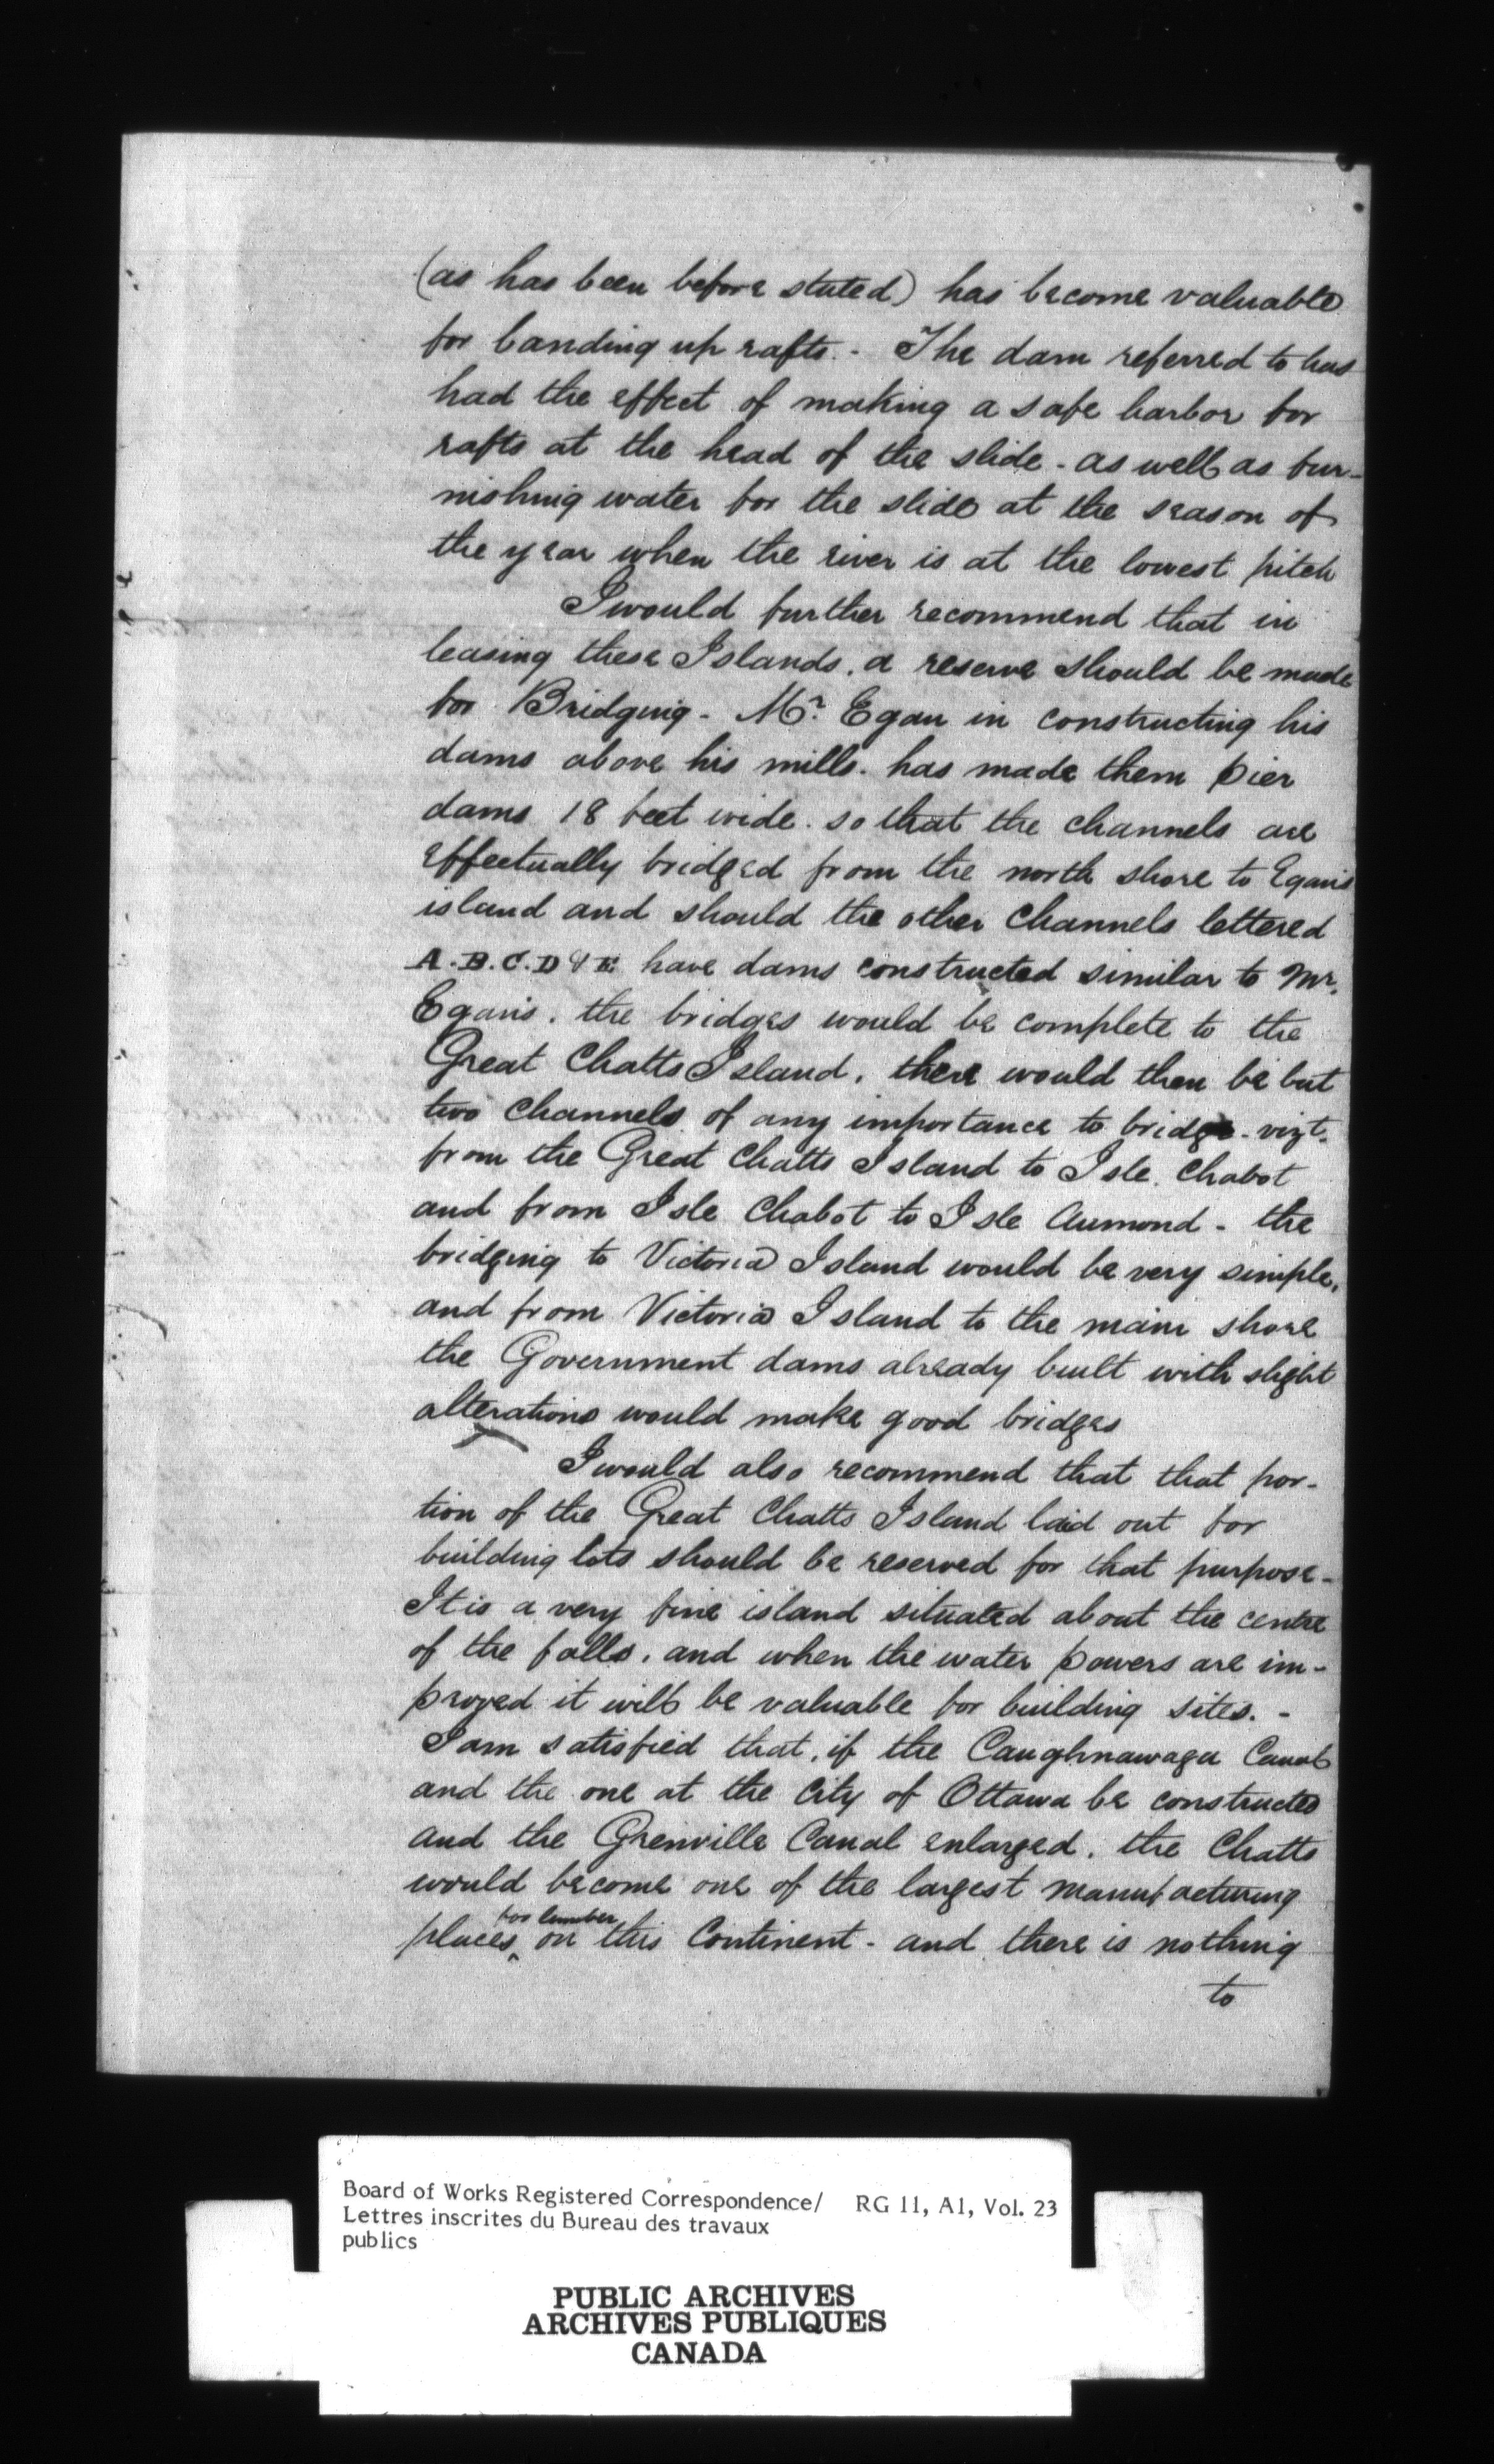 (as has been before stated) has become valuable
for banding up rafts. - The dam referred to has
had the effect of making a safe harbor for
rafts at the head of the slide - as well as fur-
nishing water for the slide at the season of
the year when the river is at the lowest pitch
I would further recommend that in
leasing these Islands, a reserve should be made
for Bridging - Mr. Egan in constructing his
dams above his mills. has made them pier
dams 18 feet wide. so that the channels are
effectually bridged from the north shore to Egan's
island and should the other Channels lettered
A. B. C. D & E have dams constructed similar to Mr.
Egan's, the bridges would be complete to the
Great Chatts Island, there would then be but
two Channels of any importance to bridge - vizt.
from the Great Chatts Island to Isle Chabot
and from Isle Chabot to Isle Aumond - the
bridging to Victoria Island would be very simple,
and from Victoria Island to the main shore
the Government dams already built with slight
alterations would make good bridges
I would also recommend that that por-
tion of the Great Chatts Island laid out for
building lots should be reserved for that purpose -
It is a very fine island situated about the centre
of the falls, and when the water powers are im-
proved it will be valuable for building sites. -
I am satisfied that, if the Caughnawaga Canal
and the one at the City of Ottawa be constructed
and the Grenville Canal enlarged, the Chatts
would become one of the largest manufacturing
for lumber
places on this Continent - and there is nothing
to
Board of Works Registered Correspondence/ RG 11, A1, Vol. 23
Lettres inscrites du Bureau des travaux
publics
PUBLIC ARCHIVES
ARCHIVES PUBLIQUES
CANADA